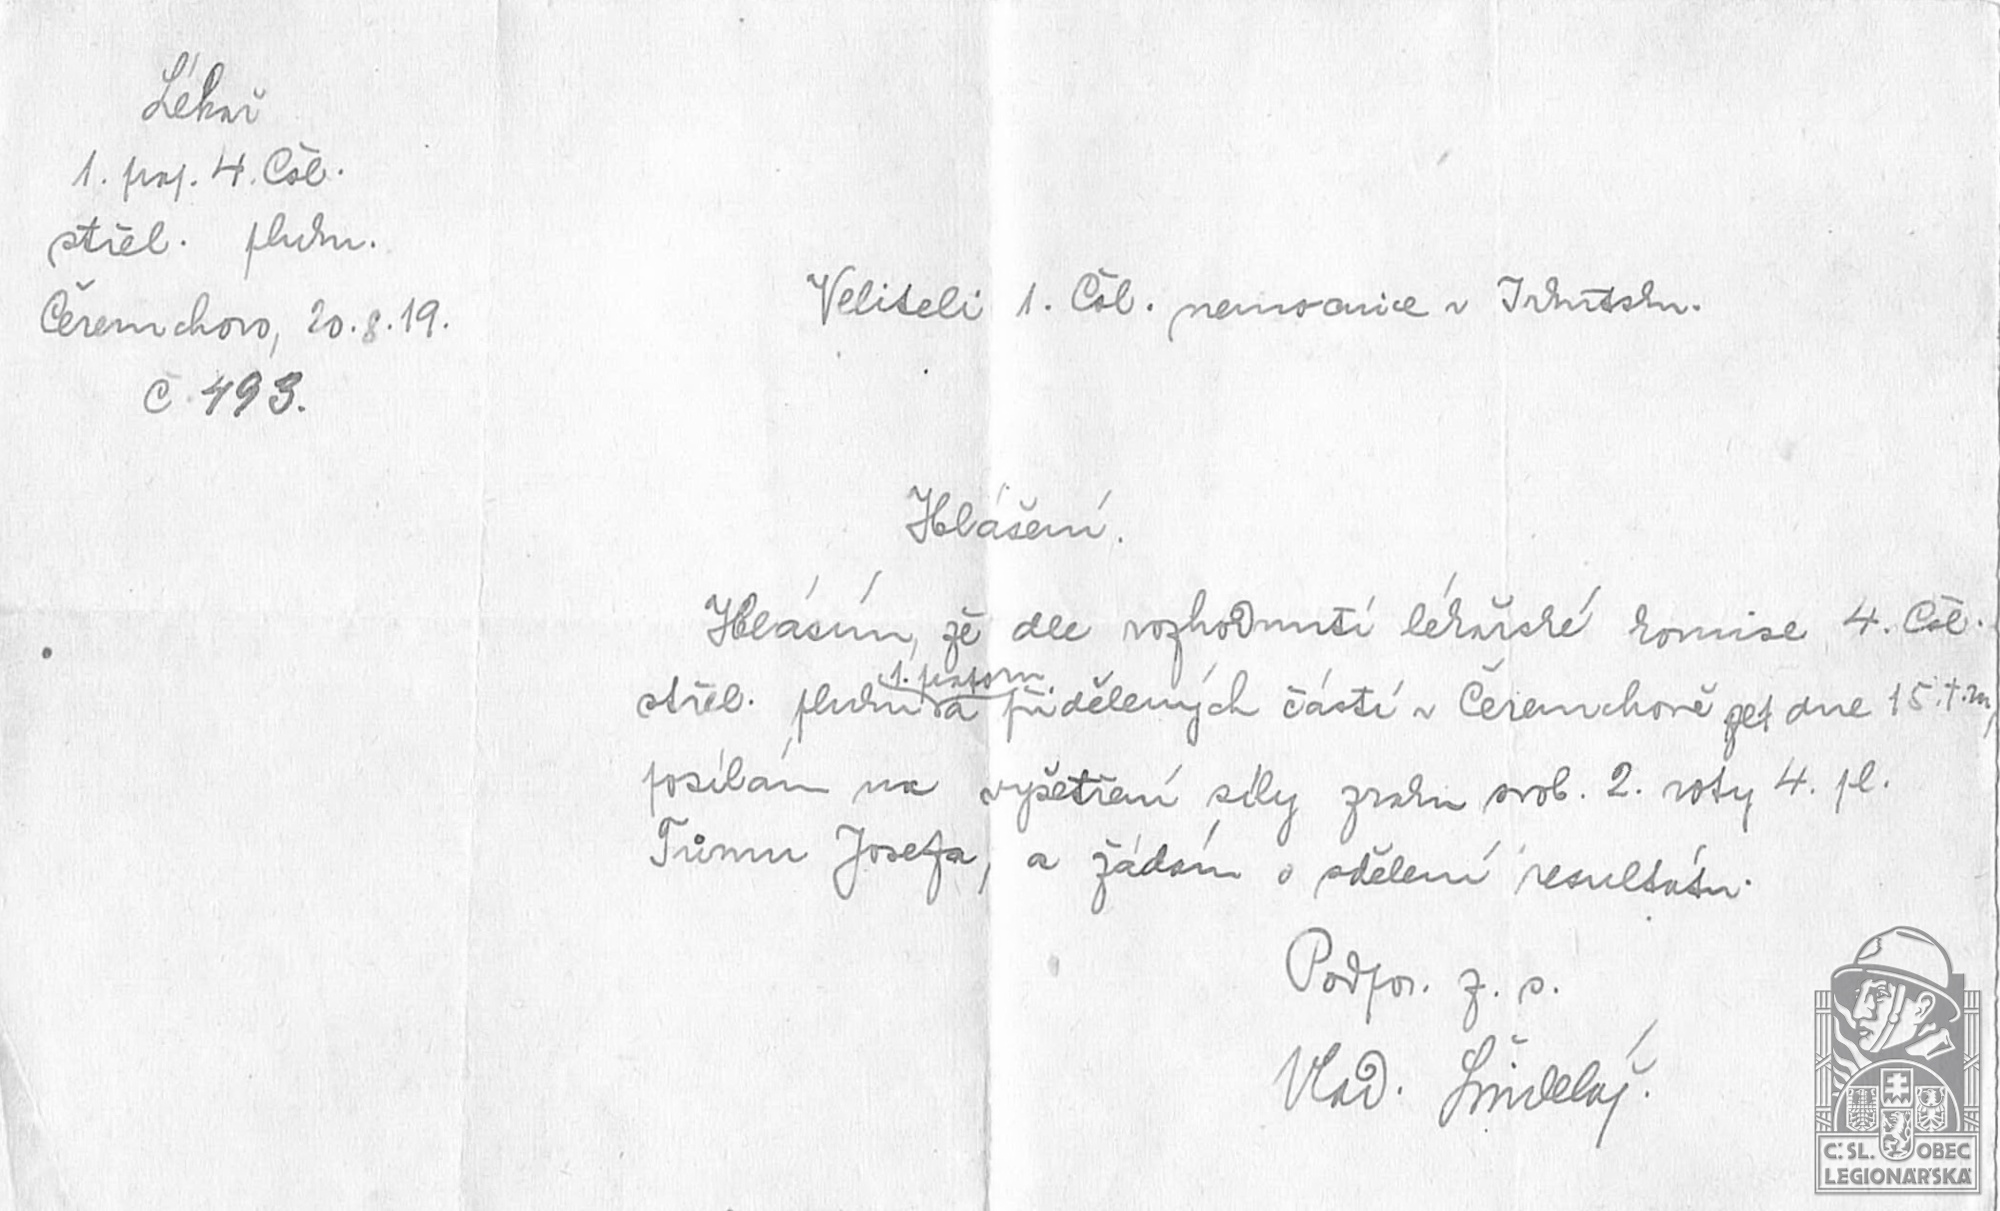 Lékař
1. prap. 4. Čsl.
střel. pluku.
Čeremchovo, 20.8.19.
Č. 493.
Veliteli 1. Čsl. nemocnice v Irkutsku.
Hlášení.
Hlásím, že dle rozhodnutí lékařské komise 4. Čsl.
1. praporu
střel. pluku a přidělených částí v Čeremchově ze dne 15. t.m,
posílám na vyšetření síly zraku svob. 2. roty 4. pl.
Tůmu Josefa, a žádám o sdělení resultátu.
Podpor. z. s.
Vlad.
Č. SL. OBEC
LEGIONÁŘSKÁ